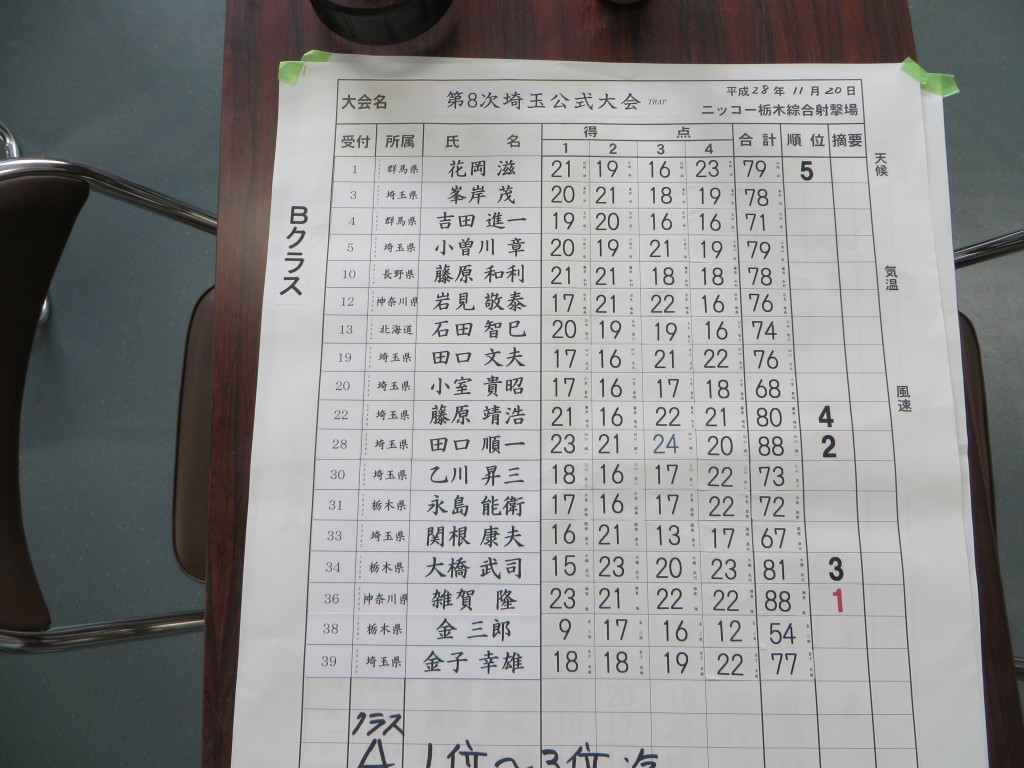 大会名 第8次埼玉公式大会 TRAP
平成28年 11月 20日
ニッコー栃木綜合射撃場
受付 所属 氏 名 得 点 合計 順位 摘要
1 2 3 4
1 群馬県 花岡 滋 21 19 16 23 79 5
3 埼玉県 峯岸 茂 20 21 18 19 78
4 群馬県 吉田 進一 19 20 16 16 71
5 埼玉県 小曽川 章 20 19 21 19 79
10 長野県 藤原 和利 21 21 18 18 78
12 神奈川県 岩見 敬泰 17 21 22 16 76
13 北海道 石田 智巳 20 19 19 16 74
19 埼玉県 田口 文夫 17 16 21 22 76
20 埼玉県 小室 貴昭 17 16 17 18 68
22 埼玉県 藤原 靖浩 21 16 22 21 80 4
28 埼玉県 田口 順一 23 21 24 20 88 2
30 埼玉県 乙川 昇三 18 16 17 22 73
31 栃木県 永島 能衛 17 16 17 22 72
33 埼玉県 関根 康夫 16 21 13 17 67
34 栃木県 大橋 武司 15 23 20 23 81 3
36 神奈川県 雑賀 隆 23 21 22 22 88 1
38 栃木県 金 三郎 9 17 16 12 54
39 埼玉県 金子 幸雄 18 18 19 22 77
Bクラス
天候
気温
風速
クラス
A 1位〜3位